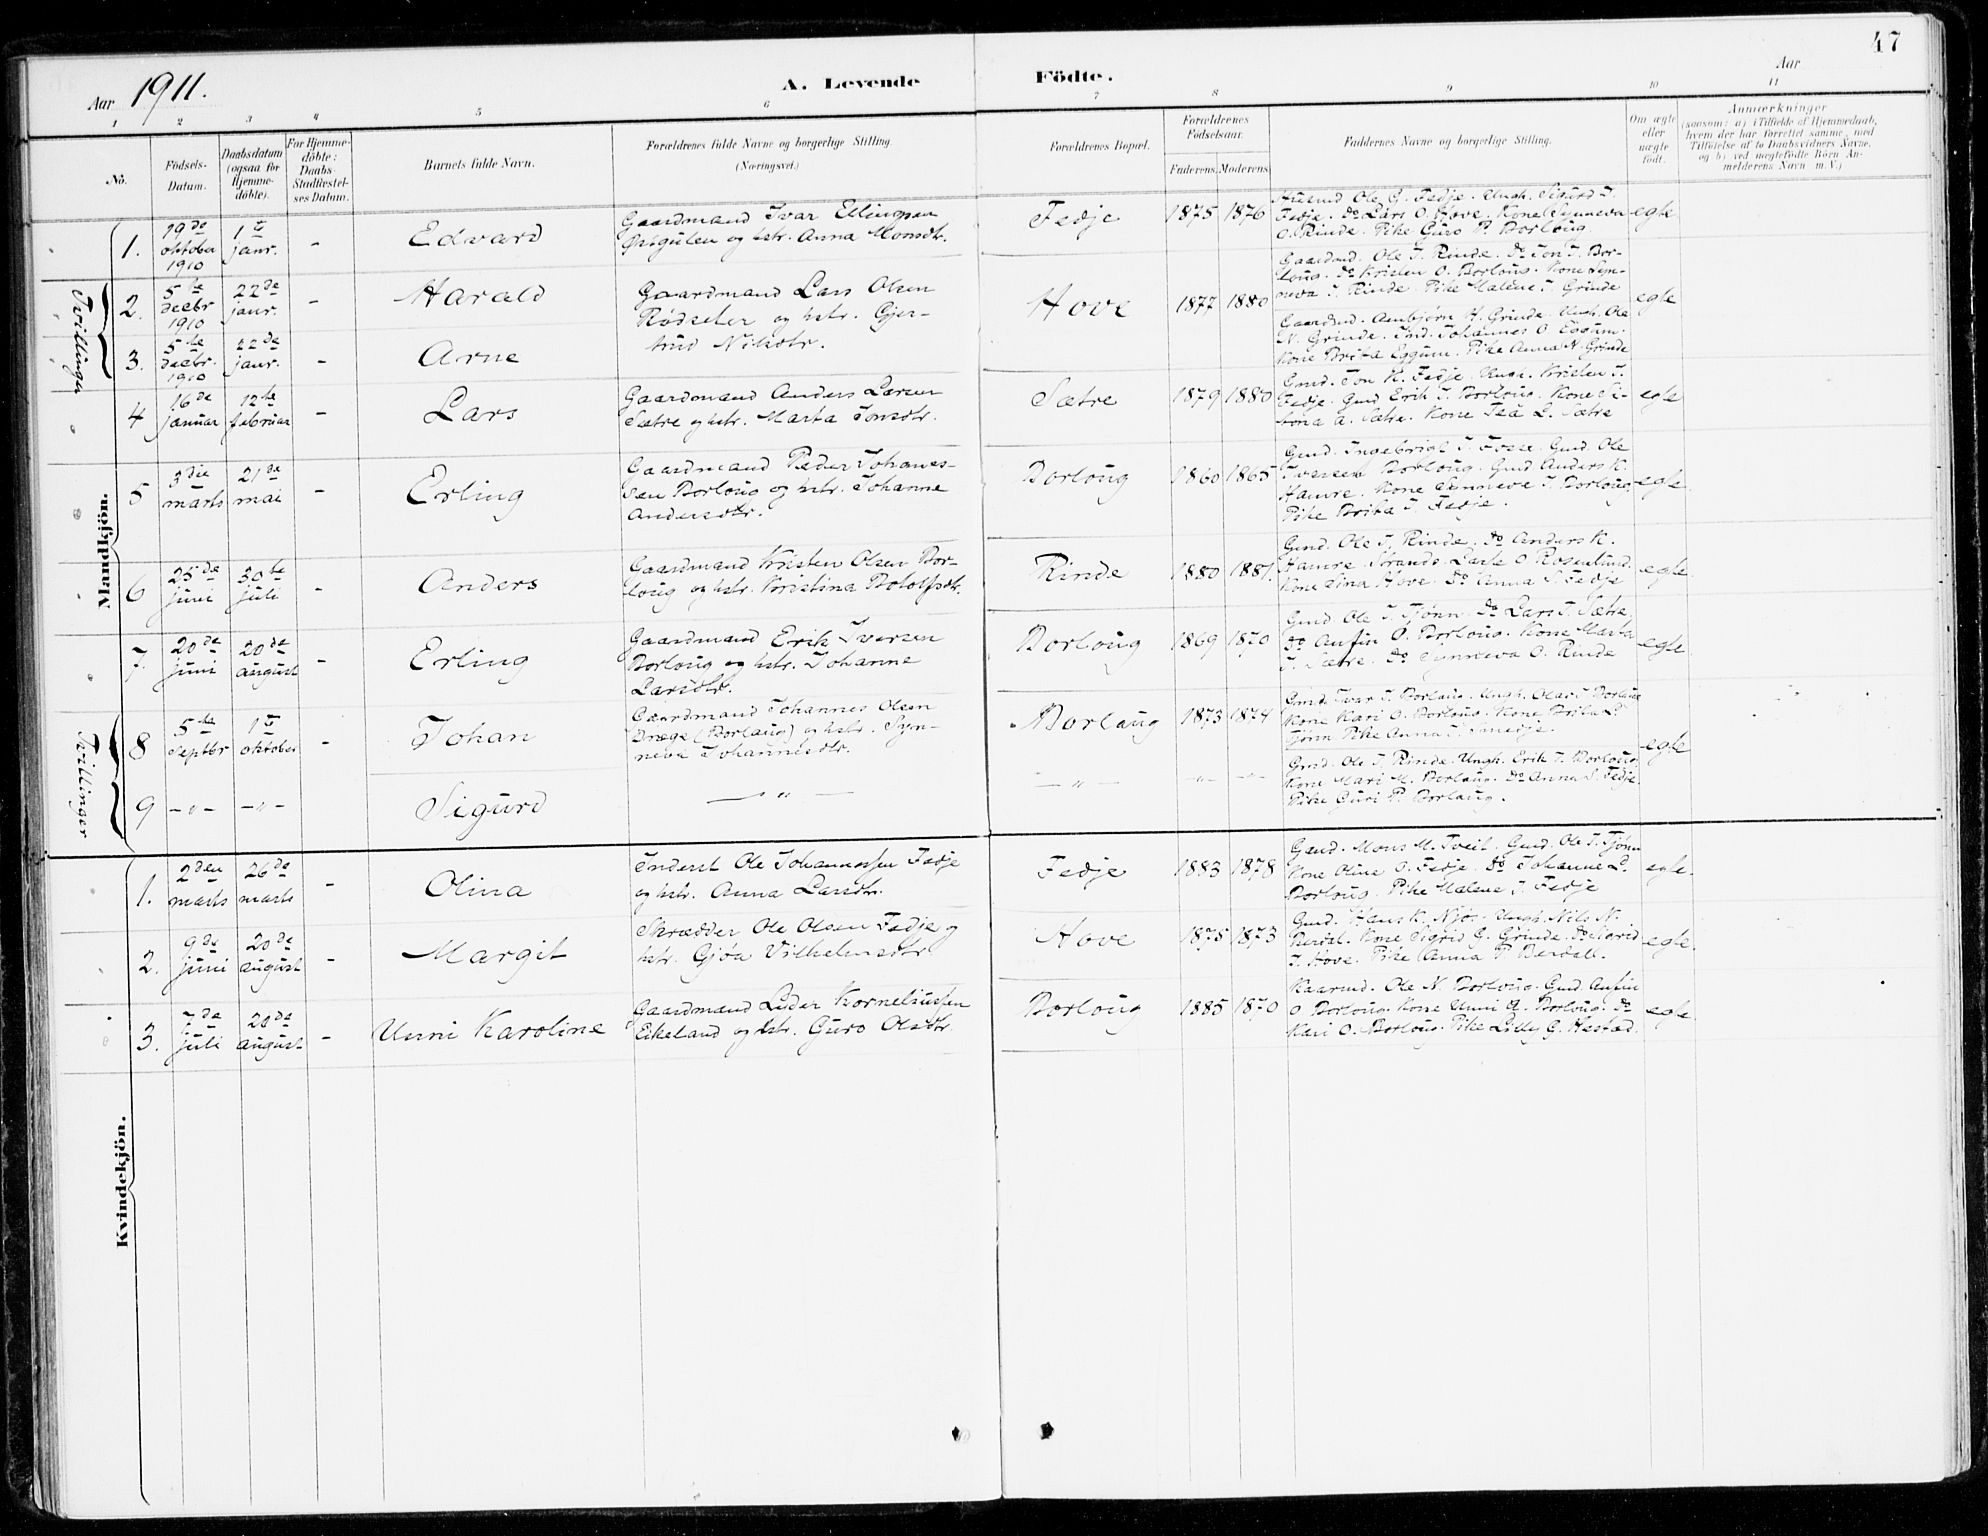 47
Aar 1911.
A. Levende Födte.
Aar
1 2 3 4 5 6 7 8 9 10 11
No.
Födsels-
Datum.
Daabsdatum
(ogsaa for
Hjemme-
döbte).
For Hjemme-
döbte:
Daabs-
Stadfæstel-
ses Datum.
Barnets fulde Navn.
Forældrenes fulde Navne og borgerlige Stilling.
(Næringsvei.)
Forældrenes Bopæl.
Forældrenes
Födselsaar.
Faderens. Moderens.
Faddernes Navne og borgerlige Stilling.
Om ægte
eller
uægte
födt.
Anmærkninger
(saasom: a) i Tilfælde af Hjemmedaab,
hvem der har forrettet samme, med
Tilföielse af to Daabsvidners Navne,
og b) ved uægtefödte Börn An-
melderens Navn m. V.)
Mandkjön.
1.
19de
oktober
1910
1te
janr.
-
Edvard
Gaardmand Ivar Ellingsen
Østgulen og hstr. Anna Monsdtr.
Fedje
1875 1876
Husmd Ole G. Fedje. Ungk. Sigurd I.
Fedje. Do Lars O. Hove. Kone Synneva
O. Rinde. Pike Guro P. Borloug.
egte
Tvillinger
2.
5te
decbr
1910
22de
janr.
-
Harald
Gaardmand Lars Olsen
Rödseter og hstr. Gjer-
trud Nilsdtr.
Hove
1877 1880
Gaardmd. Ole I. Rinde. Do Jon I. Bor-
loug. Do Kristen O. Borloug. Kone Syn-
neva I. Rinde. Pike Malene I. Grinde
egte
3.
5te
decbr.
1910
22de
janr.
-
Arne
Gaardmd. Ambjörn H. Grinde. Ungk. Ole
N. Grinde. Ind. Johannes O. Eggum.
Kone Brita Eggum. Pike Anna N. Grinde
4
16de
januar
12te
februar
-
Lars
Gaardmand Anders Larsen
Sætre og hstr. Marta Jonsdtr.
Sætre
1879 1880
Gmd. Jon K. Fedje. Ungk. Kristen I.
Fedje. Gmd Erik I. Borloug. Kone Si-
tona A. Sætre. Kone Tea L. Sætre
egte
5
3die
marts
21de
mai
-
Erling
Gaardmand Peder Johanes-
sen Borloug og hstr. Johanne
Andersdtr.
Borloug
1860 1865
Gmd. Ingebrigt I. Fosse. Gmd. Ole
Iversen Borloug. Gmd Anders K.
Hamre. Kone Synneve I. Borloug.
Pike Brita I. Fedje.
egte.
6
25de
juni
30te
juli
-
Anders
Gaardmand Kristen Olsen Bor-
loug og hstr. Kristina Botolfsdtr.
Rinde
1880 1881.
Gmd. Ole I. Rinde. Do Anders K.
Hamre. Strands. Lasse O. Rosenlund
Kone Lina Hove. Do Anna S. Fedje
egte.
7.
20de
juni
20de
august
-
Erling
Gaardmand Erik Iversen
Borloug og hstr. Johanne
Larsdtr.
Borloug
1869 1870
Gmd Ole I. Tjønn. Do Lars I. Sætre
Do Anfin O. Borloug. Kone Marta
I. Sætre. Do Synneva O. Rinde
egte.
Tvillinger
8
5te
Septbr
1te
oktober
-
Johan
Gaardmand Johannes Olsen
Dræge (Borlaug) og hstr. Syn-
neva Johannesdtr.
Borlaug
1873 1874
Gmd. Ivar I. Borlaug. Ungk. Olai I. Borlaug
Kone Kari O. Borloug. Kone Brita L.
Tjönn Pike Anna I. Smedje.
egte
9
-"- -"-
Sigurd
-"-
-"-
-"- -"-
Gmd. Ole I. Rinde. Ungk. Erik I. Borloug.
Kone Mari M. Borlaug. Do Anna S. Fedje.
Pike Guri P. Borlaug.
Kvindekjön.
1.
2den
marts
26de
marts
-
Olina
Inderst Ole Johannessen Fedje
og hstr. Anna Larsdtr.
Fedje
1883 1878
Gmd. Mons M. Tveit. Gmd. Ole I. Tjønn
Kone Oline O. Fedje. Do Johanne L.
Borloug. Pike Malene I. Fedje
egte.
2.
9de
juni
20de
august
-
Margit
Skrædder Ole Olsen Fedje og
hstr. Gjøa Vilhelmsdtr.
Hove
1875 1873
Gmd. Hans K. Njøs. Ungk. Nils N.
Berdal. Kone Sigrid G. Grinde. Do Sigrid
I. Hove. Pike Anna P. Berdal.
egte.
3.
7de
juli
20de
august
-
Unni Karoline
Gaardmand Peder Korneliussen
Eikeland og hstr. Guro Olsdtr.
Borloug
1885 1870
Kaarmd. Ole N. Borloug. Gmd Anfin
O Borloug. Kone Unni A. Borloug. Do
Kari O. Borloug. Pike Lilly G. Hestad.
egte